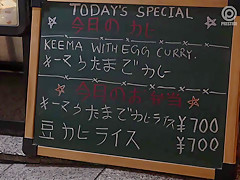 TODAY'S SPECIAL
今日のカレー
KEEMA WITH EGG CURRY.
キーマうたまごカレー
今日のお弁当
キーマうたまごカレーライス ¥700
豆カレーライス ¥700
PRESTIGE